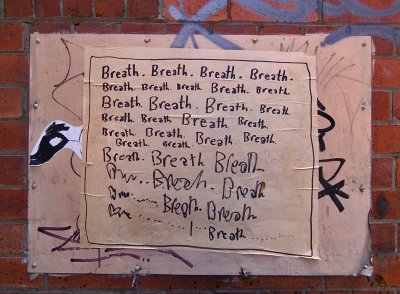 Breath. Breath. Breath. Breath.
Breath. Breath. Breath. Breath. Breath.
Breath Breath. Breath. Breath.
Breath. Breath. Breath Breath
Breath. Breath. Breath. Breath.
Breath. Breath. Breath. Breath.
Breath. Breath Breath
Breath. Breath
Breath Breath
Breath